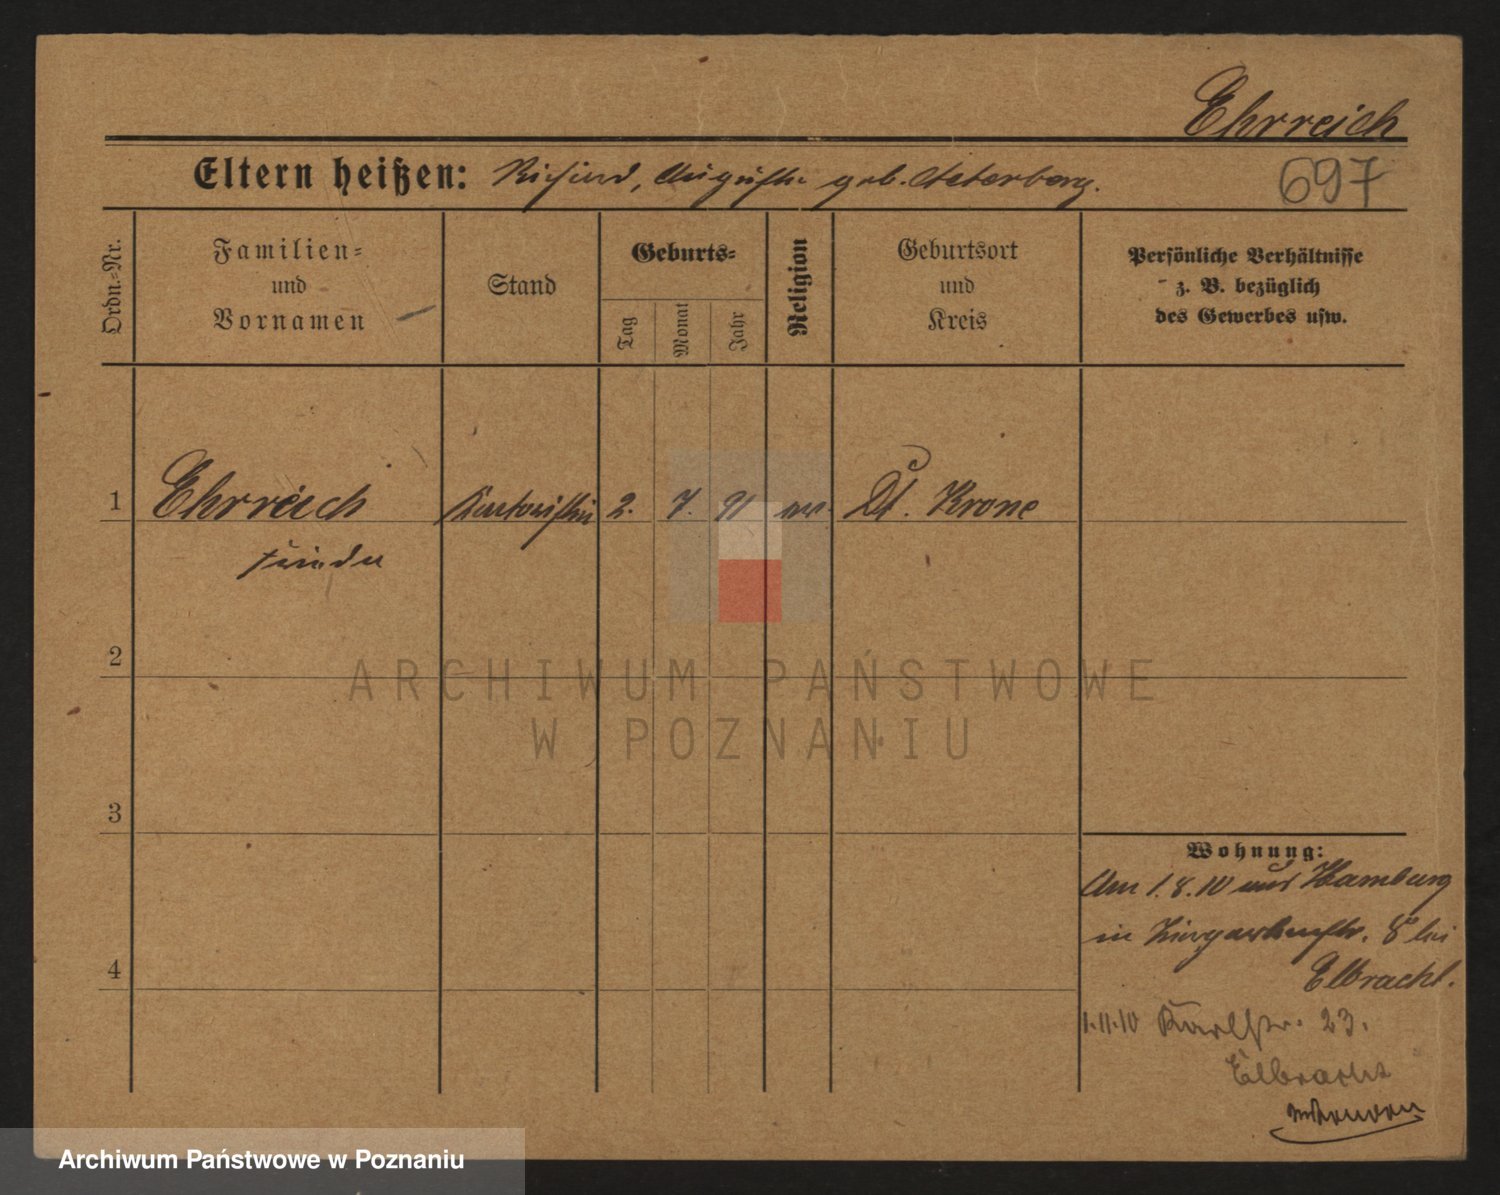 Ehrreich
Eltern heißen: Richard, Auguste geb. Aeterberg.
697
Ordn.-Nr.
Familien-
und
Vornamen
Stand
Geburts-
Tag
Monat
Jahr
Religion
Geburtsort
und
Kreis
Persönliche Verhältnisse
z. B. bezüglich
des Gewerbes usw.
1 Ehrreich Kontoristin 2. 7. 91 ev. Dt. Krone
2
3
4
Wohnung:
Am 1.8.10 aus Hamburg
in 8 bei
Elbracht.
1.11.10 Karlstr. 23.
Elbracht
ARCHIWUM PAŃSTWOWE
W POZNANIU
Archiwum Państwowe w Poznaniu